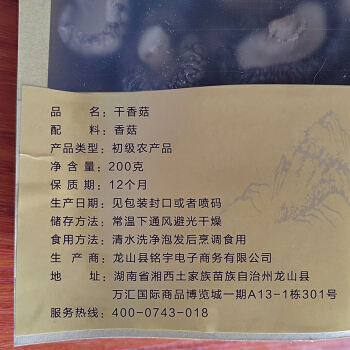 品名：干香菇
配料：香菇
产品类型：初级农产品
净含量：200克
保质期：12个月
生产日期：见包装封口或者喷码
储存方法：常温下通风避光干燥
食用方法：清水洗净泡发后烹调食用
生产商：龙山县铭宇电子商务有限公司
地址：湖南省湘西土家族苗族自治州龙山县
万汇国际商品博览城一期A13-1栋301号
服务热线：400-0743-018